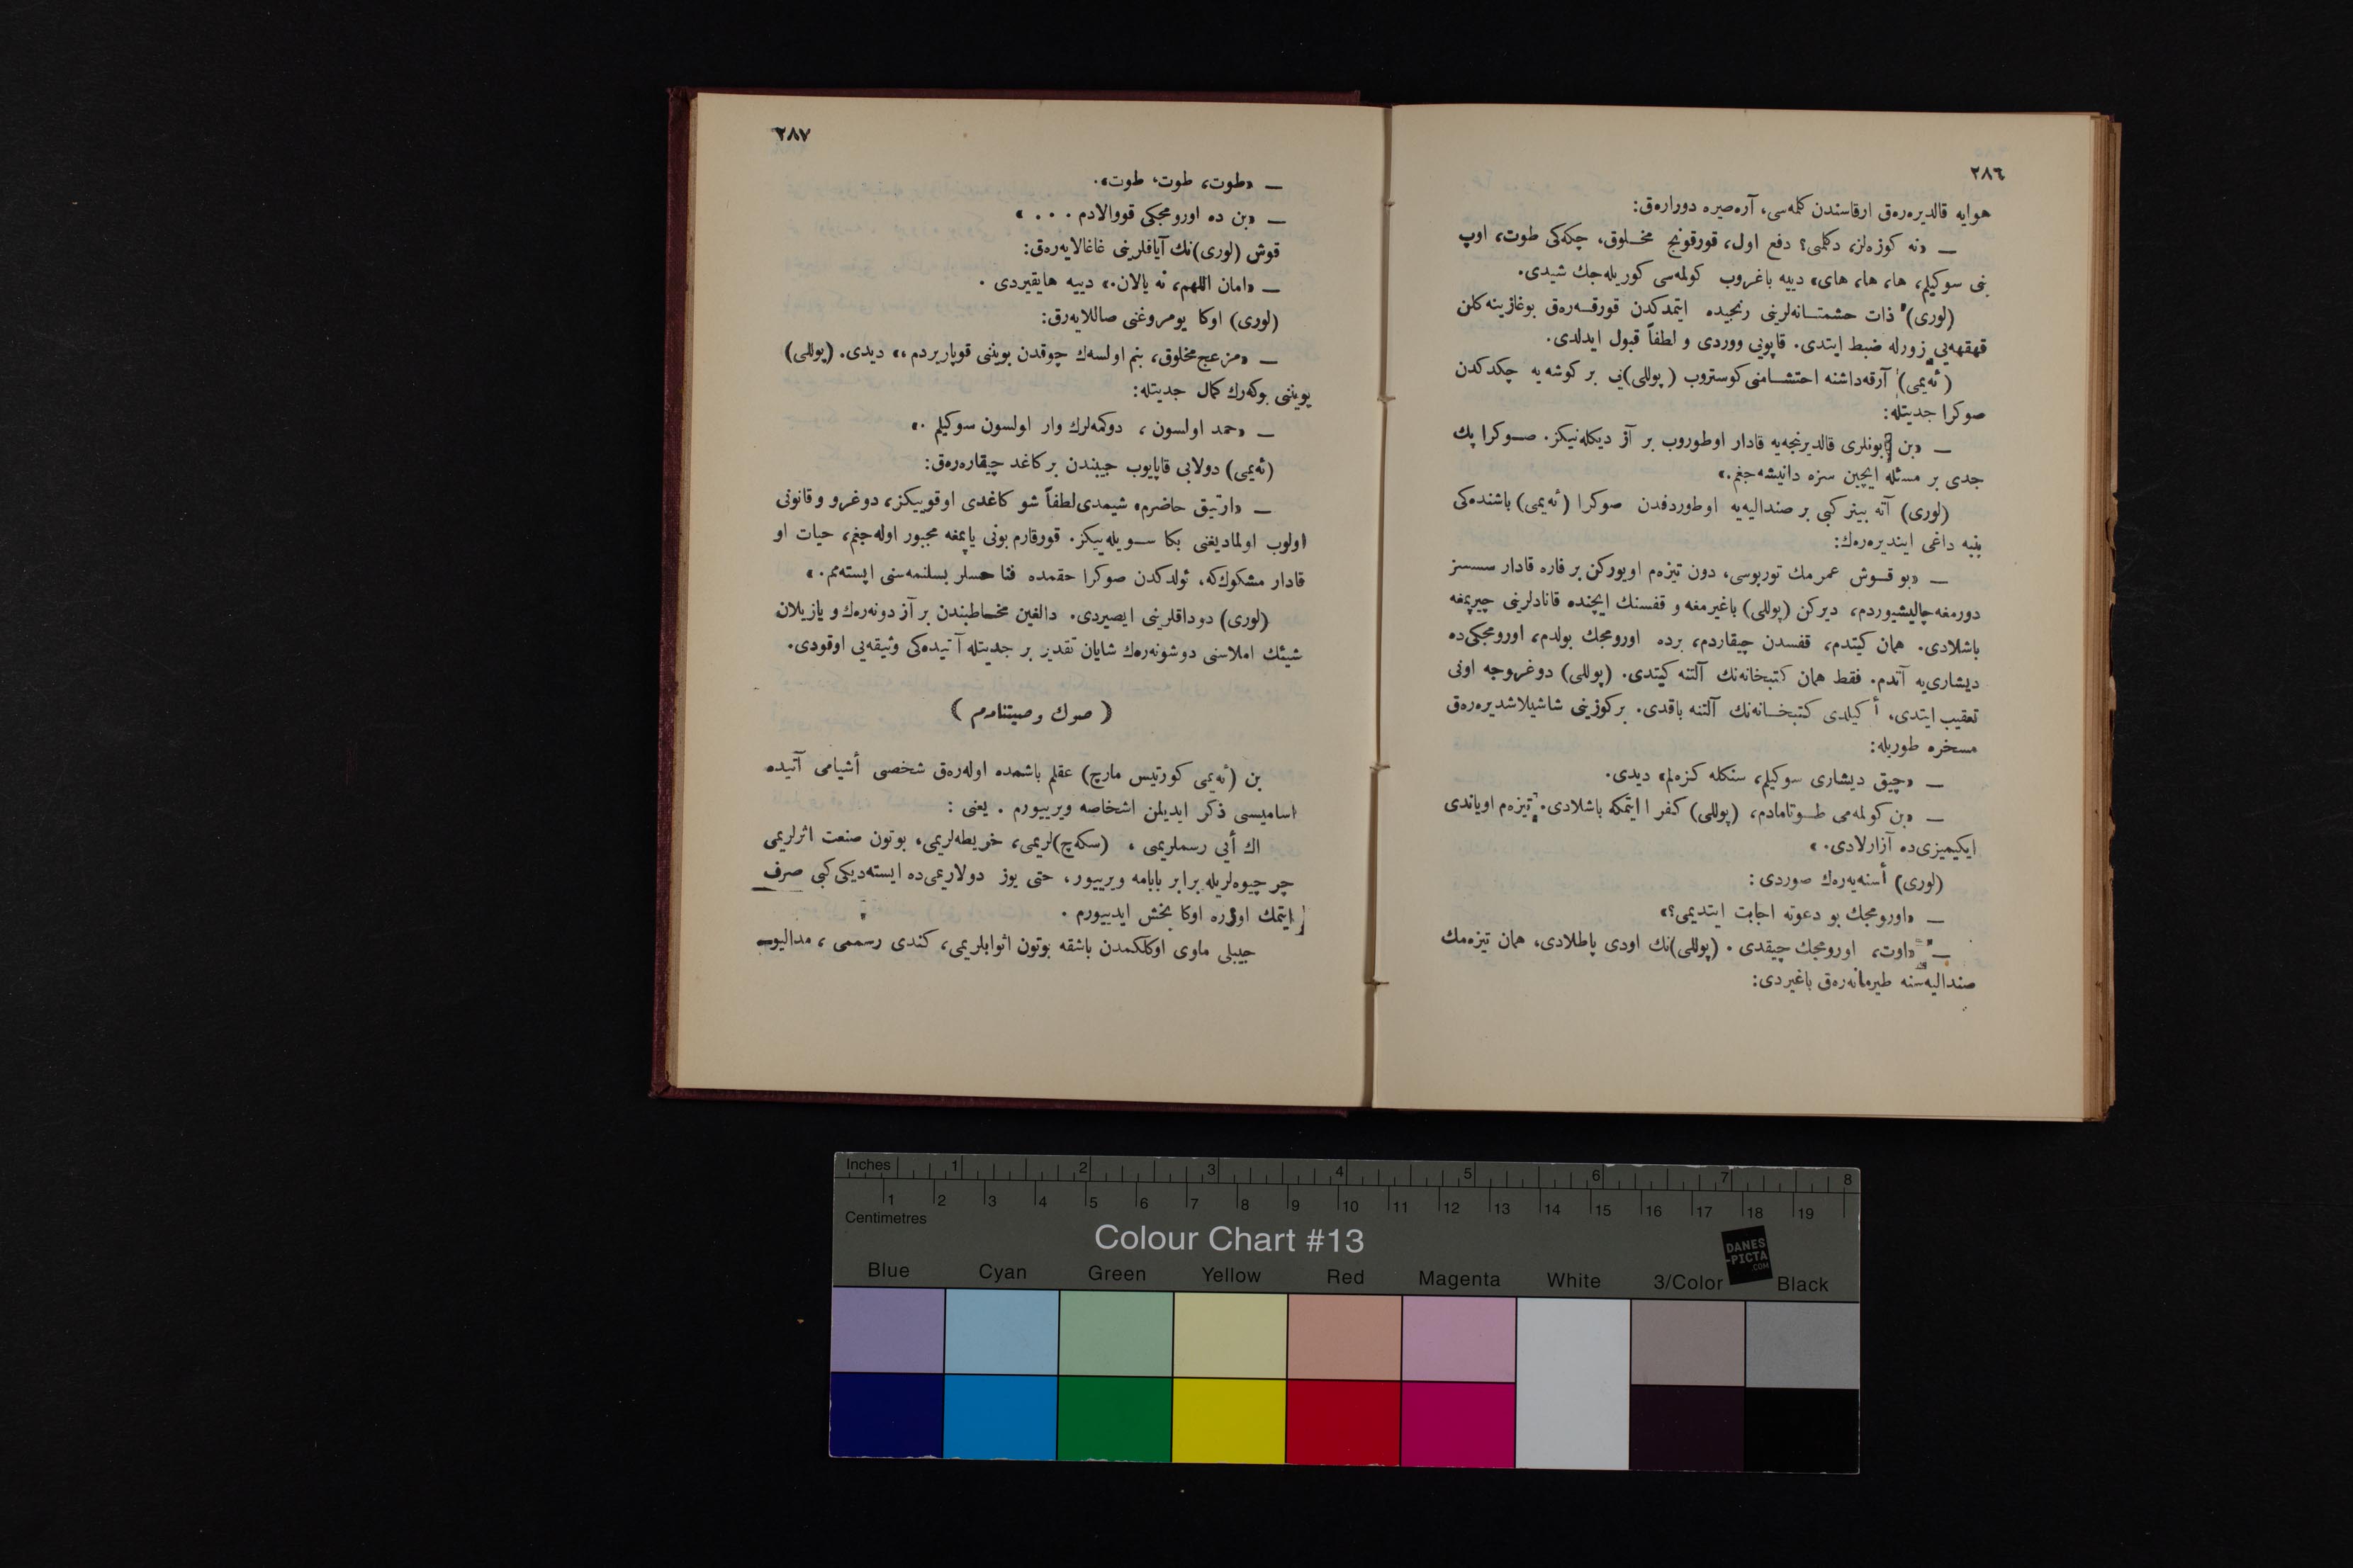 ٢٨٦
هوايه قالديره‌رەق ارقاسندن كلمه‌سی، آره‌صيره دورارەق:
— «نه كوزەلز، دكلمی؟ دفع اول، قورقونج مخلوق، چكه‌كی طوت، اوپ
بنی سوكيلم، ها، ها، های» دييه باغروب كولمه‌سی كوريله‌جك شيدی.
(لوری) ذات حشمتانه‌لرينی رنجيده ايتمدكدن قورقه‌رەق بوغازينه كلن
قهقهه‌يی زورله ضبط ايتدی. قاپويی ووردی و لطفاً قبول ايدلدی.
(ئه‌يمی) آرقه‌داشنه احتشامنی كوستروب (پوللی)یی بر كوشه‌يه چكدكدن
صوكرا جديتله:
— «بن بونلری قالديرنجه‌يه قادار اوطوروب بر آز ديكله‌نيكز. صوكرا پك
جدی بر مسئله ايچين سزه دانيشه‌جغم.»
(لوری) آته بينر كبی بر صنداليه‌يه اوطوردقدن صوكرا (ئه‌يمی) باشنده‌كی
پنبه داغی اينديره‌رەك:
— «بو قوش عمرمك توربوسی، دون تيزەم اويوركن بر فاره قادار سسسز
دورمغه چاليشيوردم، ديركن (پوللی) باغيرمغه و قفسنك ايچنده قانادلرينی چيرپمغه
باشلادی. همان كيتدم، قفسدن چيقاردم، برده اورومجك بولدم، اورومجكی‌ده
ديشاری‌يه آتدم. فقط همان كتبخانه‌نك آلتنه كيتدی. (پوللی) دوغروجه اونی
تعقيب ايتدی، أكيلدی كتبخانه‌نك آلتنه باقدی. بر كوزينی شاشيلاشديره‌رەق
مسخره طوريله:
— «چيق ديشاری سوكيلم، سنكله كزەلم» ديدی.
— «بن كولمه‌می طوتامادم، (پوللی) كفر ا ايتمكه باشلادی. تيزەم اوياندی
ايكيميزی‌ده آزارلادی. »
(لوری) أسنه‌يه‌رەك صوردی:
— «اورومجك بو دعوته اجابت ايتديمی؟»
— «اوت، اورومجك چيقدی. (پوللی)نك اودی پاطلادی، همان تيزەمك
صنداليه‌سنه طيرمانه‌رەق باغيردی:
٢٨٧
— «طوت، طوت، طوت».
— «بن ده اورومجكی قووالادم . . . »
قوش (لوری)نك آياقلرينی غاغالايه‌رەق:
— «امان اللهم، نه يالان.» دييه هايقيردی .
(لوری) اوكا يومروغنی صاللايه‌رق:
— «مزعج مخلوق، بنم اولسه‌ك چوقدن بويننی قوپاريردم.» ديدی. (پوللی)
بويننی بوكه‌رك كمال جديتله:
— «حمد اولسون ، دوكمه‌لرك وار اولسون سوكيلم .»
(ئه‌يمی) دولابی قاپايوب جيبندن بر كاغد چيقاره‌رەق:
— «ارتيق حاضرم» شيمدی لطفاً شو كاغدی اوقوييكز، دوغرو و قانونی
اولوب اولماديغنی بكا سويله‌ييكز. قورقارم بونی ياپمغه مجبور اوله‌جغم، حيات او
قادار مشكوك‌كه، ئولدكدن صوكرا حقمده فنا حسلر بسلنمه‌سنی ايسته‌مم.»
(لوری) دوداقلرينی ايصيردی. دالغين مخاطبندن بر آز دونه‌رەك و يازيلان
شيئك املاسنی دوشونه‌رەك شايان تقدير بر جديتله آتيده‌كی وثيقه‌يی اوقودی.
( صوك وصيتنامەم )
بن (ئه‌يمی كورتيس مارچ) عقلم باشمده اوله‌رەق شخصی أشيامی آتيده
اساميسی ذكر ايديلن اشخاصه ويرييورم . يعنی :
اك أيی رسملريمی ، (سكه‌چ)لريمی، خريطه‌لريمی، بوتون صنعت اثرلريمی
چرچيوه‌لريله برابر بابامه ويرييور، حتی يوز دولاريمی‌ده ايسته‌ديكی كبی صرف
ايتمك اوزره اوكا بخش ايدييورم .
جيبلی ماوی اوكلكمدن باشقه بوتون اثوابلريمی، كندی رسممی ، مداليون